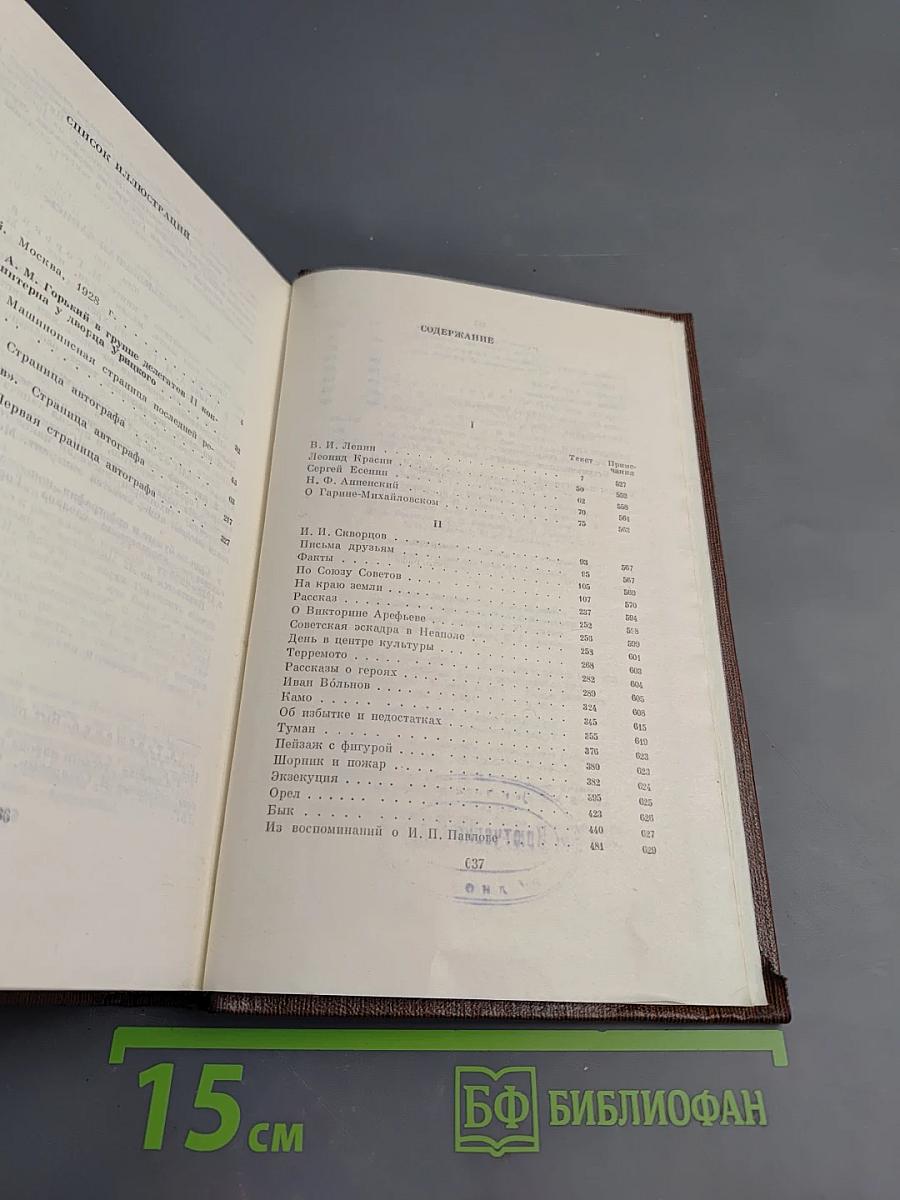 СПИСОК ИЛЛЮСТРАЦИЙ
й. Москва. 1928 г. . . .
А. М. Горький в группе делегатов II кон-
интерна у дворца Урицкого . . . 4
Машинописная страница последней ре-
. . . 32
Страница автографа . . .
в». Страница автографа . . . 62
Первая страница автографа . . . 217
327
СОДЕРЖАНИЕ
Текст Приме-
чания
I
В. И. Ленин . . . 7 527
Леонид Красин . . . 50 552
Сергей Есенин . . . 62 558
Н. Ф. Анненский . . . 70 561
О Гарине-Михайловском . . . 75 563
II
И. И. Скворцов . . . 93 567
Письма друзьям . . . 95 567
Факты . . . 105 569
По Союзу Советов . . . 107 570
На краю земли . . . 237 594
Рассказ . . . 252 598
О Викторине Арефьеве . . . 256 599
Советская эскадра в Неаполе . . . 258 601
День в центре культуры . . . 268 603
Терремото . . . 282 604
Рассказы о героях . . . 289 605
Иван Во́льнов . . . 324 608
Камо . . . 345 615
Об избытке и недостатках . . . 355 619
Туман . . . 376 623
Пейзаж с фигурой . . . 380 623
Шорник и пожар . . . 382 624
Экзекуция . . . 395 625
Орел . . . 423 626
Бык . . . 440 627
Из воспоминаний о И. П. Павлове . . . 481 629
637
15 см
БФ БИБЛИОФАН